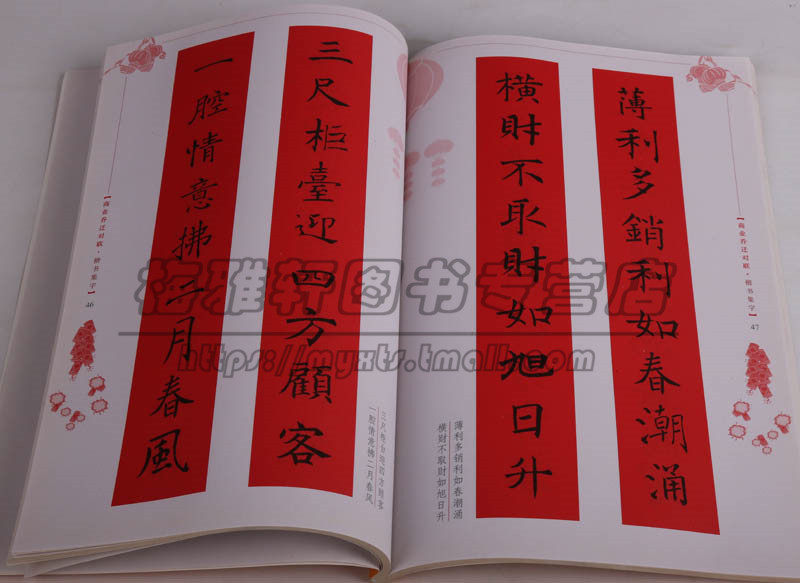 三尺柜臺迎四方顧客
一腔情意拂二月春風
三尺柜台迎四方顾客
一腔情意拂二月春风
【商业乔迁对联·楷书集字】 46
薄利多銷利如春潮涌
横財不取財如旭日升
薄利多销利如春潮涌
横财不取财如旭日升
【商业乔迁对联·楷书集字】 47
雅轩图书专营店
https://myxts.tmall.com